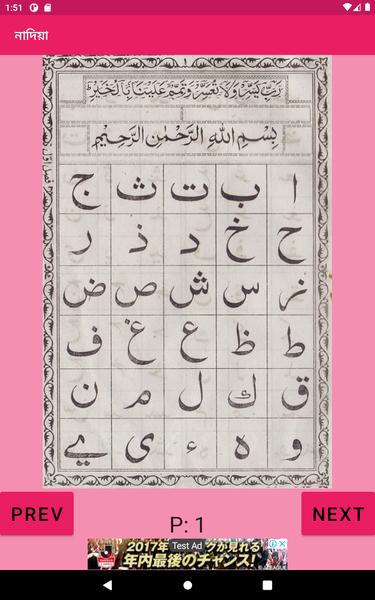 1:51
নাদিয়া
١
رَبِّ يَسِّرْ وَلَا تُعَسِّرْ وَتَمِّمْ عَلَيْنَا بِالْخَيْرِ
بِسْمِ اللهِ الرَّحْمٰنِ الرَّحِيْمِ
ا ب ت ث ج
ح خ د ذ ر
ز س ش ص ض
ط ظ ع غ ف
ق ك ل م ن
و ه ء ى ے
PREV
P: 1
NEXT
2017年
Test Ad
グが見れる
年内最後のチャンス!